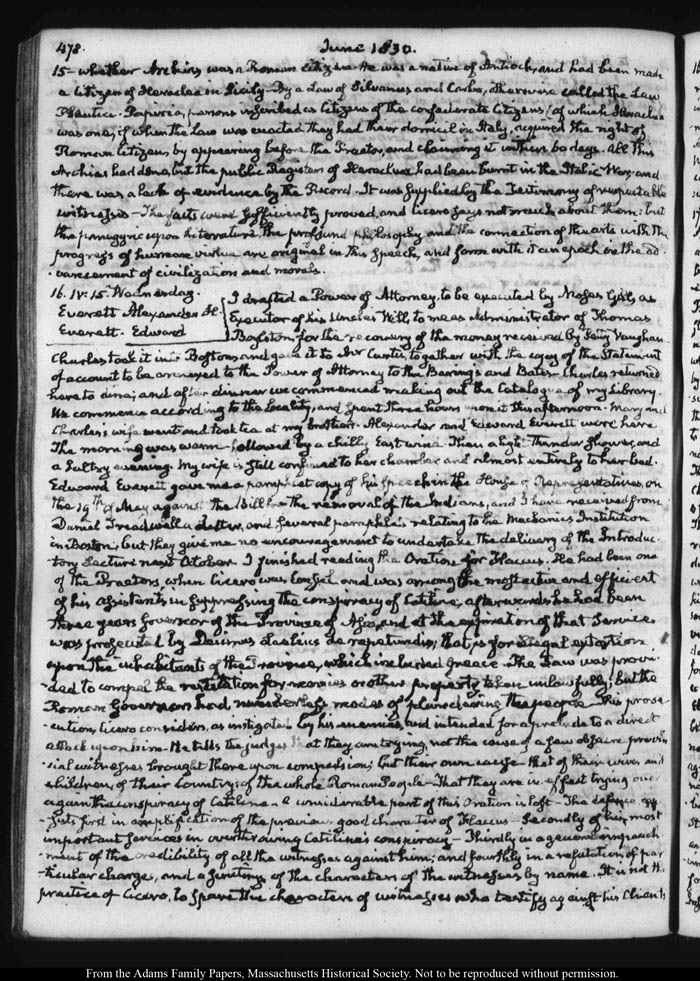 478.
June 1830.
15— whether Archias was a Roman citizen. He was a native of Antioch, and had been made
a Citizen of Heraclea in Sicily— By a Law of Silvanus and Carbo, otherwise called the Law
Plautia-Papiria, persons inscribed as Citizens of the confederate Citizens (of which Heraclea
was one) if when the Law was enacted they had their domicil in Italy, acquired the right of
Roman Citizens, by appearing before the Praetor, and claiming it within 60 days. All this
Archias had done, but the public Registers of Heraclea had been burnt in the Italic War, and
there was a lack of evidence by the Record. It was supplied by the Testimony of respectable
witnesses— The facts were sufficiently proved, and Cicero says not much about them: but
the panegyric upon literature, the profound philosophy and the connection of the arts with the
progress of human virtue are original in this Speech, and form with it an epoch in the ad-
-vancement of civilization and morals.
16. IV: 15. Wednesday.
Everett Alexander H.
Everett. Edward
I drafted a Power of Attorney, to be executed by Moses Gill, as
Executor of his Uncles Will, to me as Administrator of Thomas
Boylston, for the recovery of the money received by Petty Vaughan
Charles took it into Boston, and gave it to Mr Curtis, together with the copy of the Statement
of account to be annexed to the Power of Attorney to the Barings and Bates. Charles returned
here to dine; and after dinner we commenced making out the Catalogue of my Library.
We commence according to the locality, and spent three hours upon it this afternoon. Mary and
Charles's wife went and took tea at my brother's. Alexander and Edward Everett were here
The morning was warm— followed by a chilly East wind. Then a light Thunder shower, and
a sultry evening. My wife is still confined to her chamber and almost entirely to her bed.
Edward Everett gave me a pamphlet copy of his Speech in the House of Representatives, on
the 19th of May against the Bill for the removal of the Indians, and I have received from
Daniel Treadwell a Letter, and several pamphlets relating to the Mechanics Institution
in Boston; but they give me no encouragement to undertake the delivery of the Introduc-
-tory Lecture next October. I finished reading the Oration for Flaccus. He had been one
of the Praetors, when Cicero was Consul and was among the most active and efficient
of his assistants in suppressing the conspiracy of Catiline, afterwards he had been
three years Governor of the Province of Asia, and at the expiration of that Service
was prosecuted by Decimus Laelius de repetundis, that is for illegal extortion
upon the inhabitants of the Province, which included Greece. The Law was provi-
-ded to compel the restitution for monies or other property taken unlawfully; but the
Roman Governors had numberless modes of plundering the people— This prose-
-cution, Cicero considers, as instigated by his enemies, and intended for a prelude to a direct
attack upon him— He tells the judges that they are trying, not the cause of a few obscure provin-
-cial witnesses brought there upon compulsion; but their own cause— that of their wives and
children, of their Country, of the whole Roman People— That they are in effect trying over
again the conspiracy of Catiline— A considerable part of this Oration is lost— The defence con-
-sists first in amplification of the previous good character of Flaccus— Secondly of his most
important services in overthrowing Catilines conspiracy— Thirdly in a general impeach-
-ment of the credibility of all the witnesses against him; and fourthly in a refutation of par-
-ticular charges, and a scrutiny of the characters of the witnesses by name. It is not the
practice of Cicero, to spare the characters of witnesses who testify against his Clients
From the Adams Family Papers, Massachusetts Historical Society. Not to be reproduced without permission.